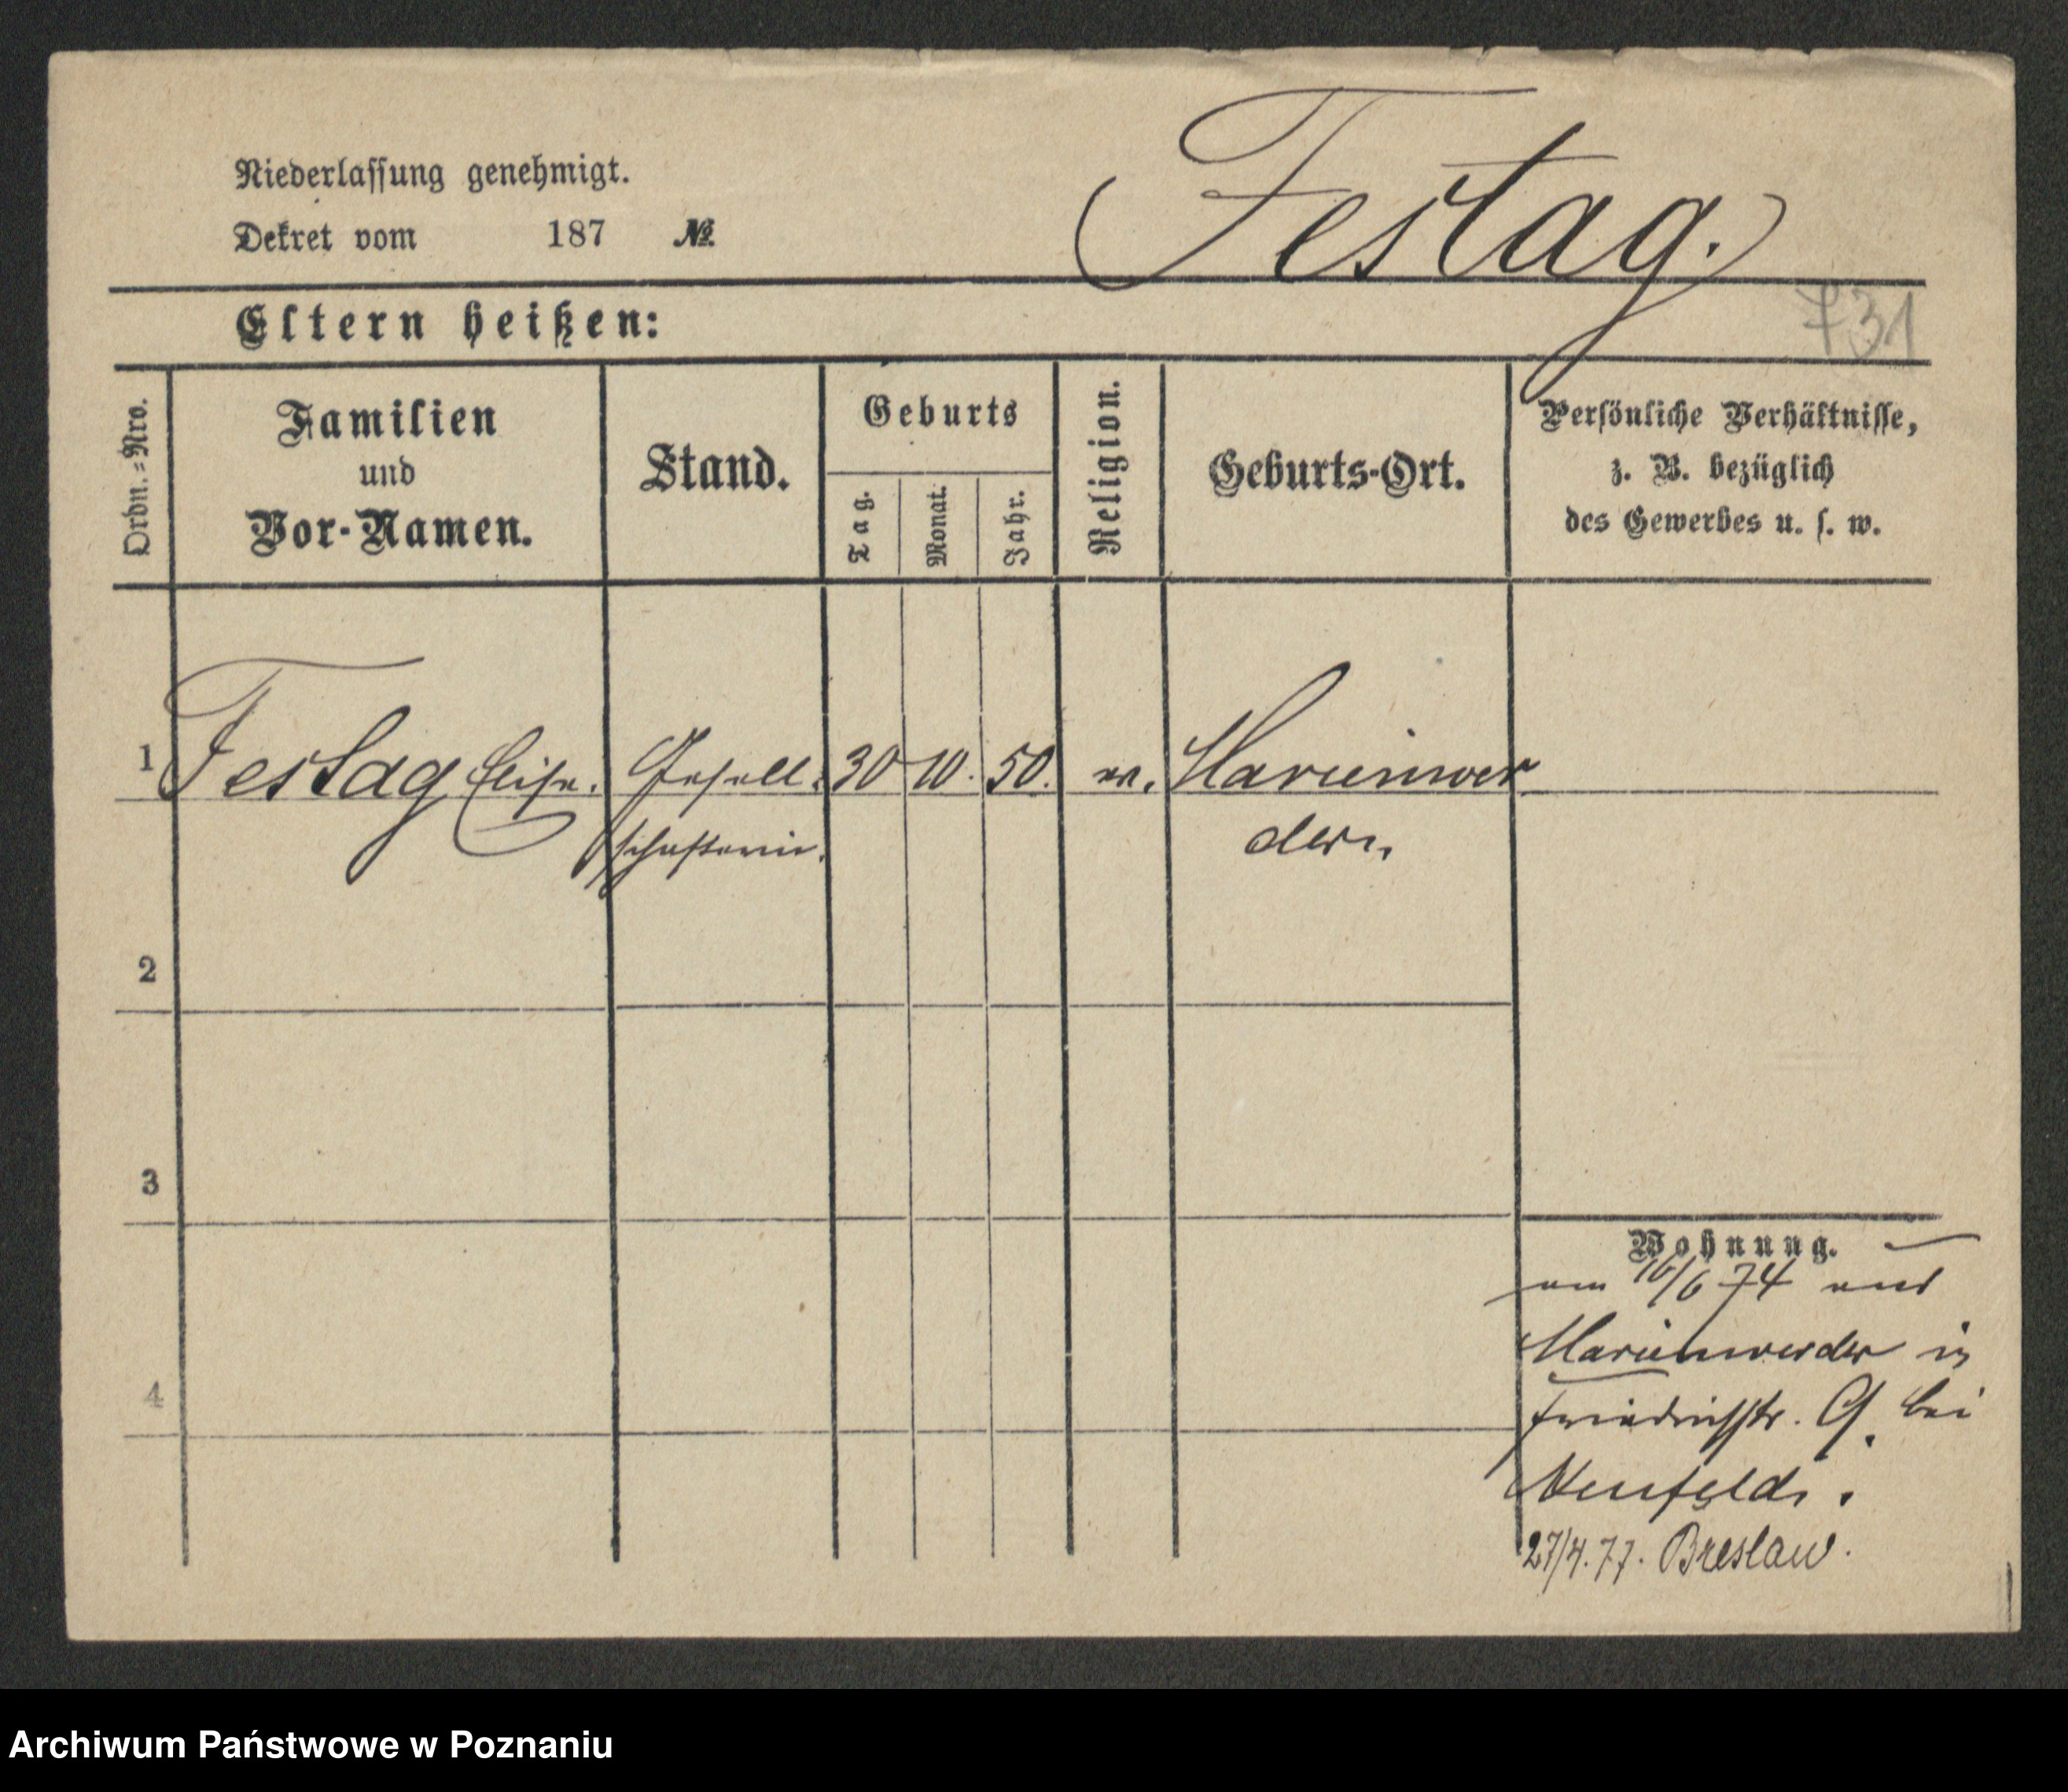 Niederlassung genehmigt.
Dekret vom 187 №
Festag.
Eltern heißen:
731
Ordn.=Nro.
Familien
und
Vor-Namen.
Stand.
Geburts
Tag.
Monat.
Jahr.
Religion.
Geburts-Ort.
Persönliche Verhältnisse,
z. B. bezüglich
des Gewerbes u. s. w.
1 Festag Elise. Gesell= 30 10. 50. ev. Marienwer
schafterin. der.
2
3
4
Wohnung.
am 16/6 74 aus
Marienwerder in
Friedrichstr. 9. bei
Neufeld.
27/4.77. Breslau.
Archiwum Państwowe w Poznaniu